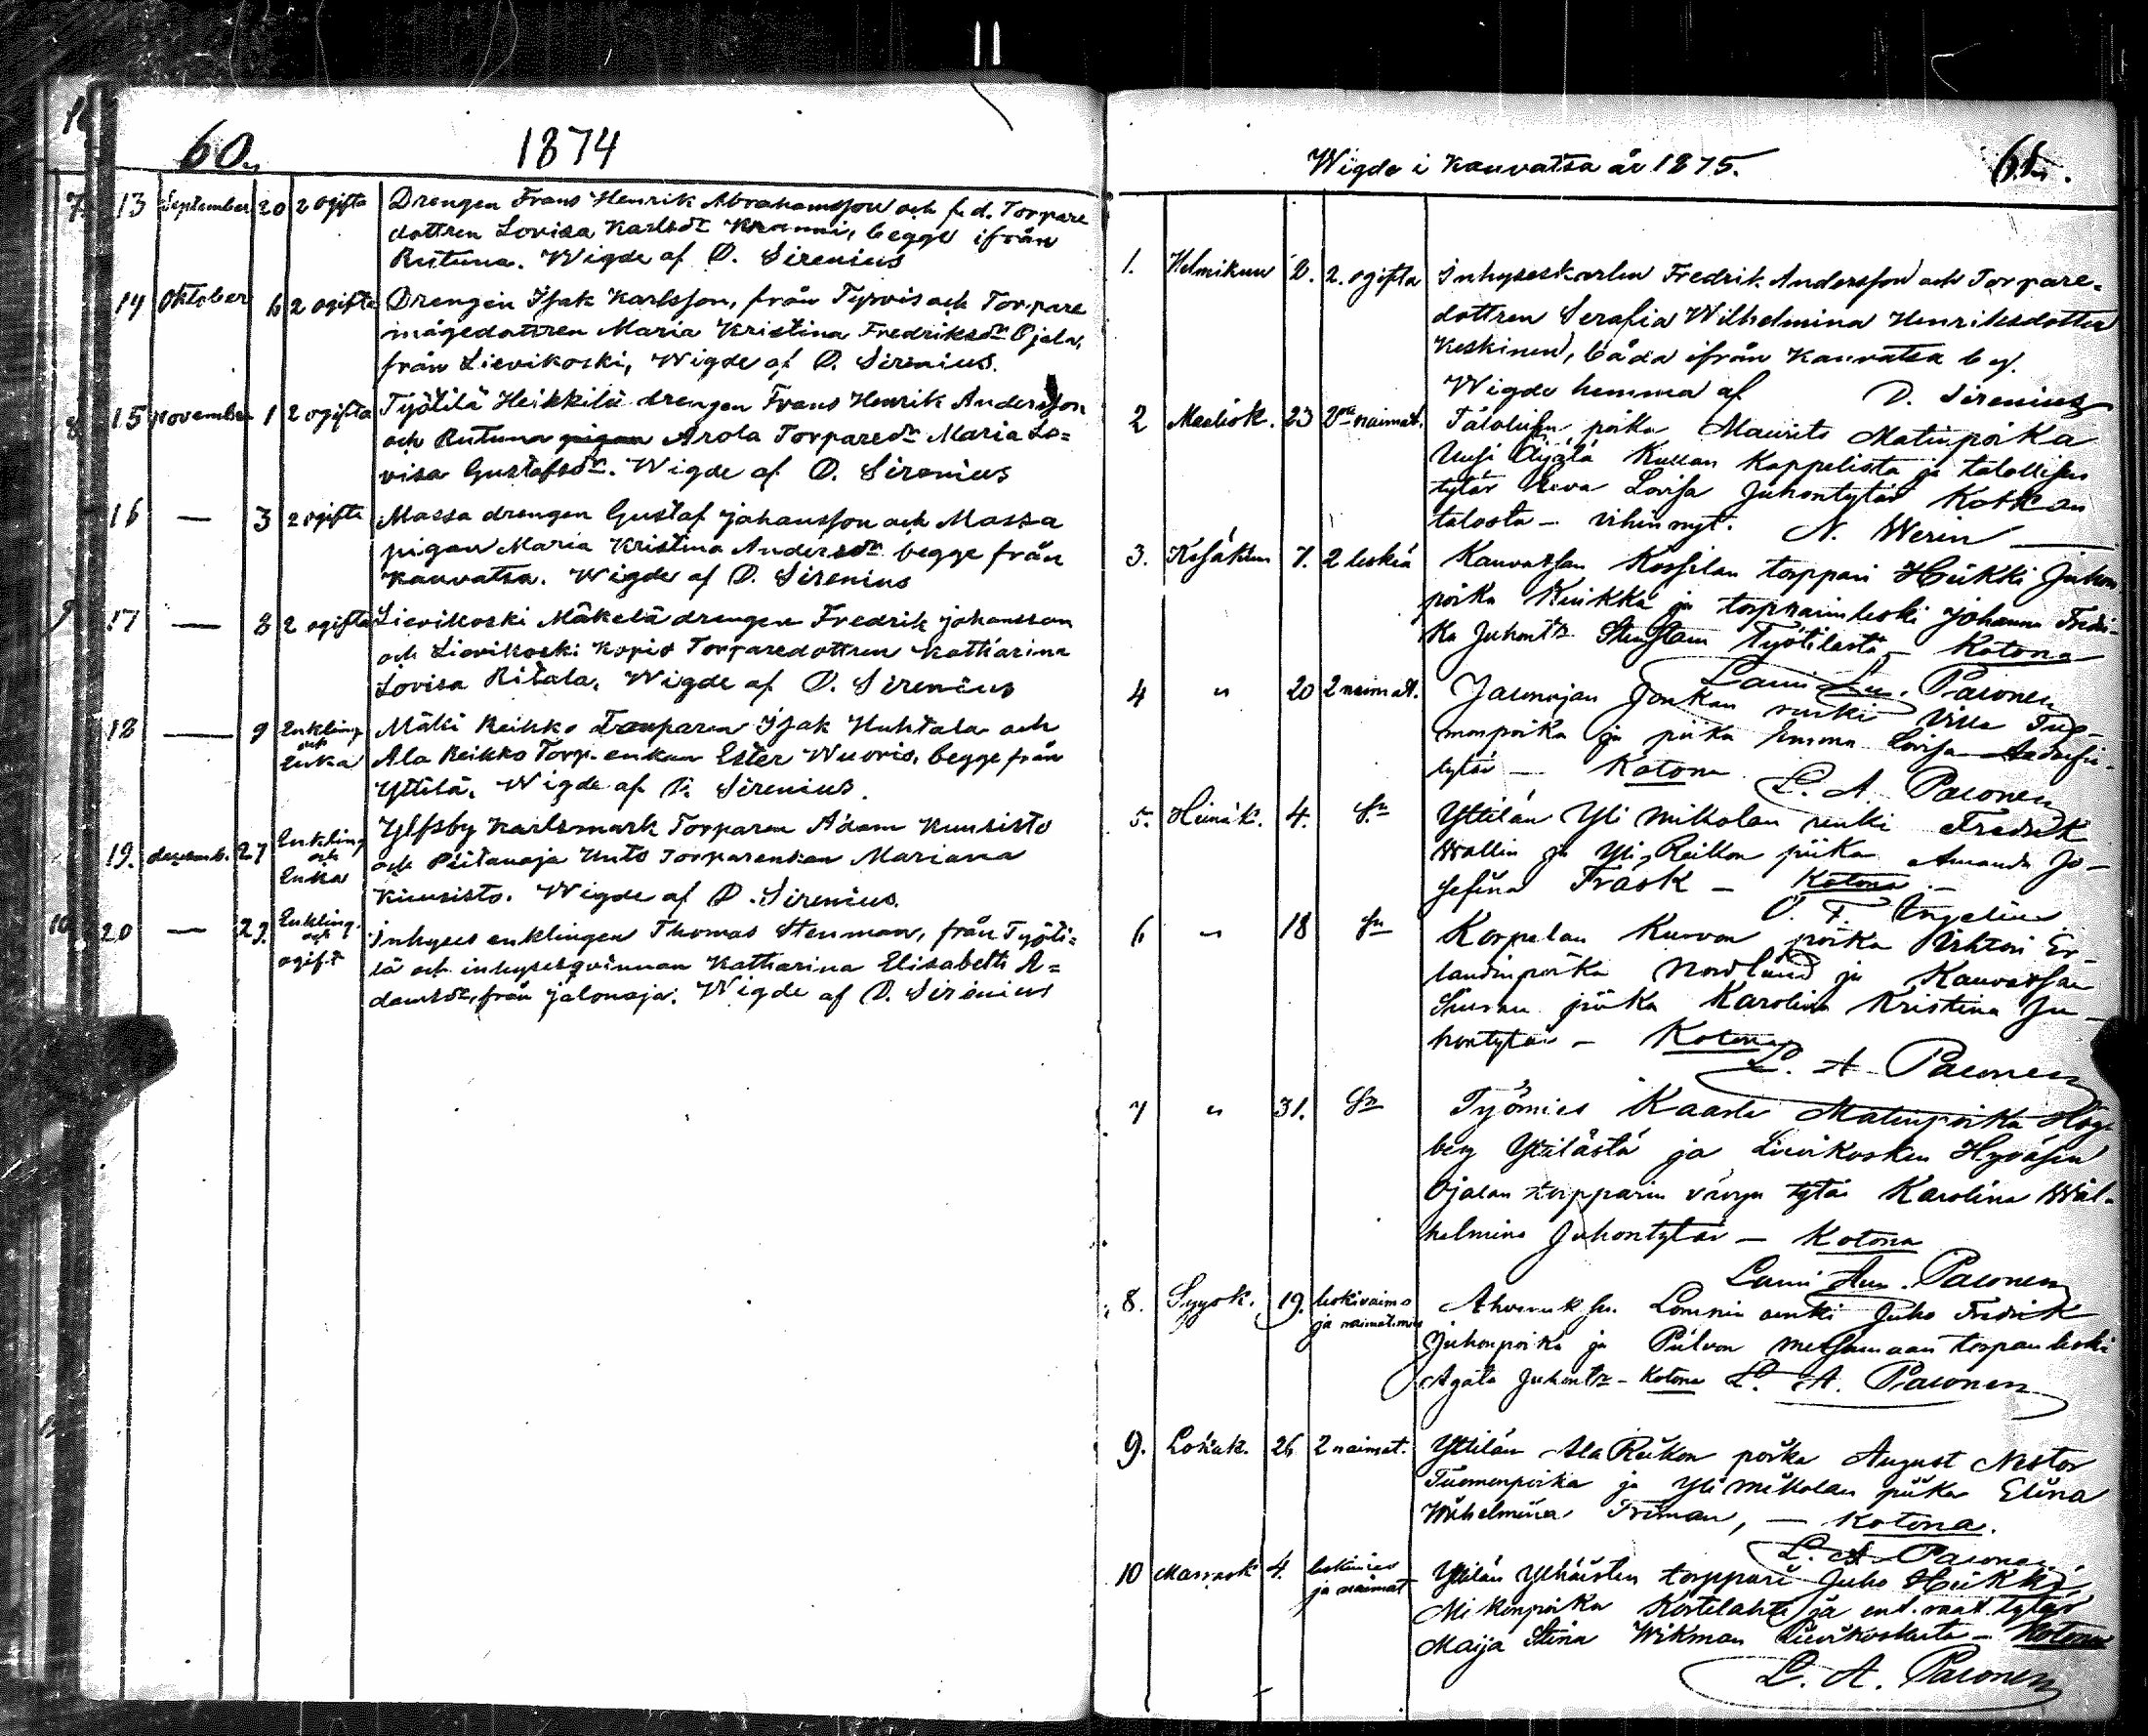 60.
1874
13 September 20 2 ogifta Drengen Frans Henrik Abrahamsson och f.d. Torpare
dottren Lovisa Karlsdr Kranni, begge ifrån
Rutuna. Wigde af D. Sirenius
14 Oktober 6 2 ogifta Drengen Isak Karlsson, från Tyrvis och Torpare
mågedottren Maria Kristina Fredriksdr Ojala,
från Lievikoski, Wigde af D. Sirenius.
15 November 1 2 ogifta Työtilä Heikkilä drengen Frans Henrik Andersson
och Rutuna pigan Arola Torparedr Maria Lo=
visa Gustafsdr. Wigde af D. Sirenius
16 — 3 2 ogifta Massa drengen Gustaf Johansson och Massa
pigan Maria Kristina Andersdr begge från
Kauvatsa. Wigde af D. Sirenius
17 — 8 2 ogifta Lievikoski Mäkelä drengen Fredrik Johansson
och Lievikoski Kopio Torparedottren Katharina
Lovisa Ritala. Wigde af D. Sirenius
18 — 9 Enkling och Enka Mäki Reikko Torparen Isak Huhtala och
Ala Reikko Torp. enkan Ester Wuoris, begge från
Yttilä. Wigde af D. Sirenius.
19. decemb. 27 Enkling och Enka Ylfsby Karlsmark Torparen Adam Kuusisto
och Piitanoja Torparenkan Mariana
Kuusisto. Wigde af D. Sirenius.
20 — 29. Enkling och ogift Inhyses enklingen Thomas Stenman, från Työti=
lä och inhysesqvinnan Katharina Elisabeth A=
damsdr, från Jalonoja. Wigde af D. Sirenius
Wigde i Kauvatsa år 1875.
61.
1. Helmikuu 2. 2. ogifta Inhyseskarlen Fredrik Andersson och Torpare=
dottren Serafia Wilhelmina Henriksdotter
Keskinen, båda ifrån Kauvatsa by.
Wigde hemma af D. Sirenius
2 Maalisk. 23 naimat. Talolisen poika Maurits Matinpoika
Uusi Äijälä Kullan Kappelista ja talollisen
tytär Eeva Lovisa Juhontytär Kotkan
talosta – vihinnyt. N. Werin
3. Kesäkuu 7. 2 leskiä Kauvatsan torppari Heikki Juhon
poika Kuikka ja torpparinleski Johanna Fredri-
ka Juhontr Työtilästä – Kotona
Lauri Au. Paionen
4 " 20 2 naimat. Jalonojan Jonkan renki Ville Tuo-
monpoika ja piika Emma Lovisa
tytär – Kotona L. A. Paionen
5. Heinäk. 4. Sn Yttilän Yli Mikolan renki Fredrik
Wallin ja Yli-Reikon piika Amanda Jo-
sefina Trask – Kotona –
O. F. Ingelius
6 " 18 Sn Korpelan poika Er-
landinpoika Nordlund ja Kauvatsan
piika Karolina Kristina Ju-
hontytär – Kotona
L. A Paionen
7 " 31. Sn Työmies Kaarle Matinpoika Hög-
berg Yttilästä ja Lievikosken Hyväsen
Ojalan torpparin vävyn tytär Karolina Wil-
helmina Juhontytär – Kotona
Lauri Au. Paionen
8. Syysk. 19. leskivaimo ja naimat.mies renki Juho Fredrik
Juhonpoika ja Piilvon Metsämaan torpan leski
Agata Juhontr – Kotona L. A. Paionen
9. Lokak. 26 2 naimat. Yttilän Ala Reikon poika August Nestor
Tuomenpoika ja Yli Mikolan piika Elina
Wilhelmina Friman, – Kotona.
L. A Paionen
10 Marrask 4. leskimies ja naimat Yttilän torppari Juho Heikki
Mikonpoika Koitelahti ja ent. tytär
Maija Stina Wikman Lievikoskelta – Kotona
L. A. Paionen